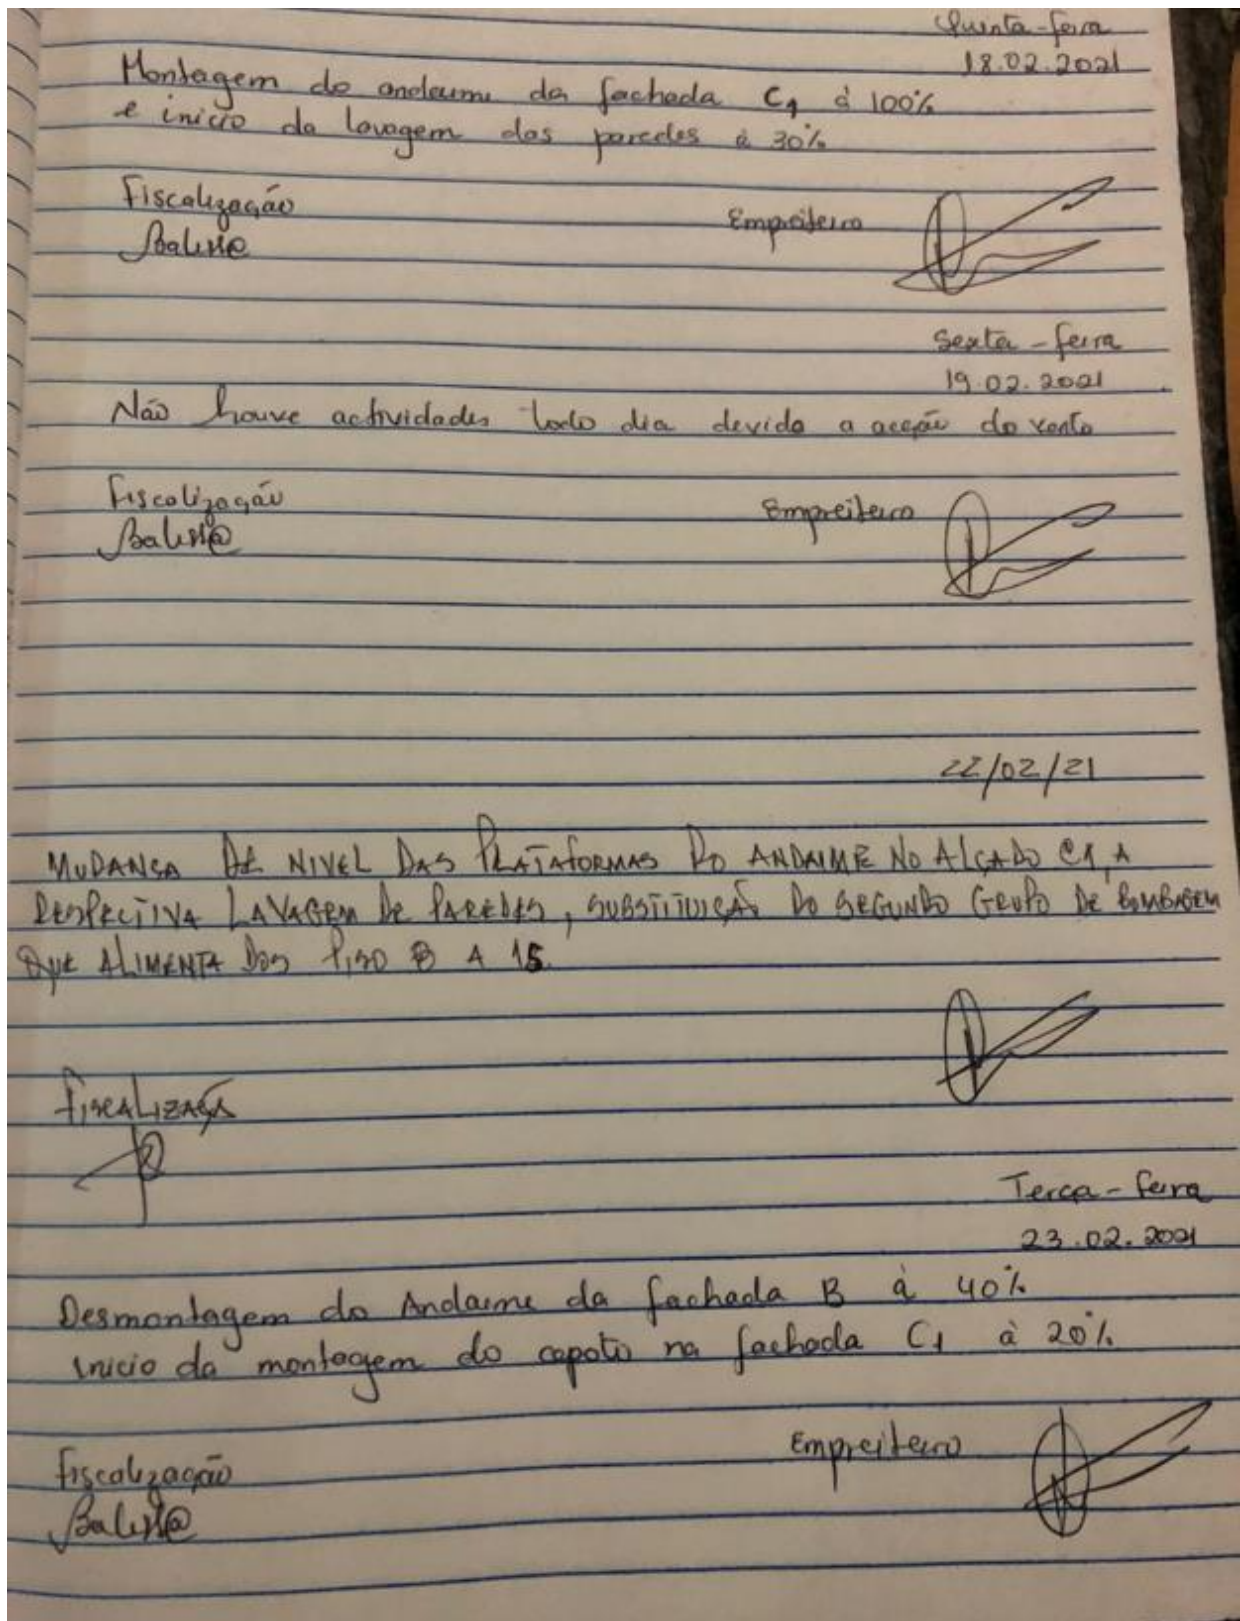 Quinta-feira
18.02.2021
Montagem do andaime da fachada C1 à 100%
e inicio da lavagem das paredes à 30%
Fiscalização
Empreiteiro
Sexta-feira
19.02.2021
Não houve actividades todo dia devido a acção do vento
Fiscalização
Empreiteiro
22/02/21
MUDANÇA DE NIVEL DAS PLATAFORMAS DO ANDAIME NO ALÇADO C1, A
RESPECTIVA LAVAGEM DE PAREDES, SUBSTITUIÇÃO DO SEGUNDO GRUPO DE BOMBAGEM
QUE ALIMENTA DOS PISO 8 A 15.
FISCALIZAÇÃ
Terça-feira
23.02.2021
Desmontagem do Andaime da fachada B à 40%
inicio da montagem do capoto na fachada C1 à 20%
Empreiteiro
Fiscalização